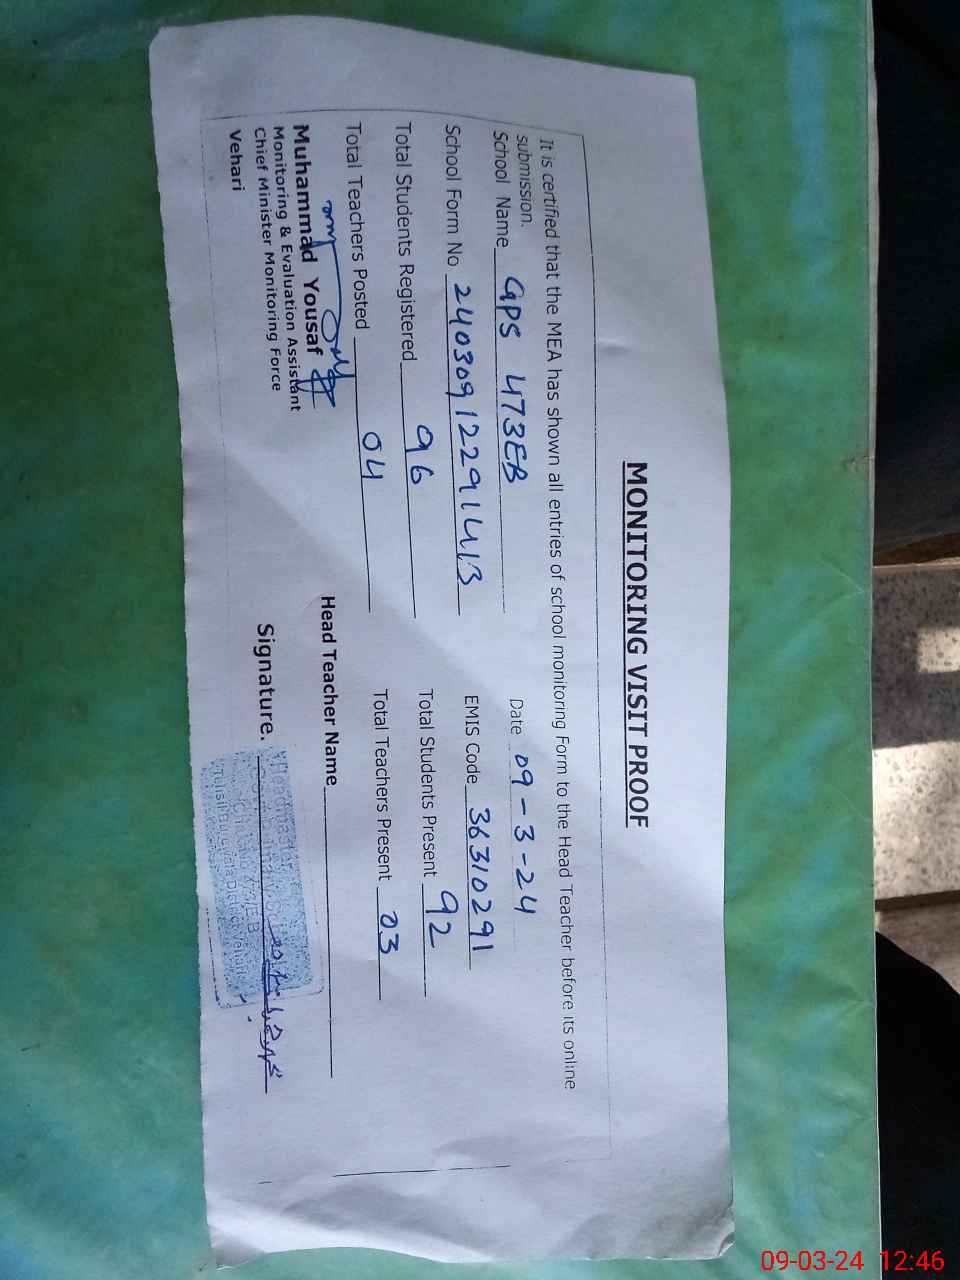 MONITORING VISIT PROOF
It is certified that the MEA has shown all entries of school monitoring Form to the Head Teacher before its online
submission.
School Name GPS 473EB Date 09-3-24
School Form No 240309122291413 EMIS Code 36310291
Total Students Registered 96 Total Students Present 92
Total Teachers Posted 04 Total Teachers Present 03
Muhammad Yousaf
Monitoring & Evaluation Assistant
Chief Minister Monitoring Force
Vehari
Head Teacher Name
Signature.
Headmaster
473/EB
Tehsil Burewala District Vehari
09-03-24 12:46